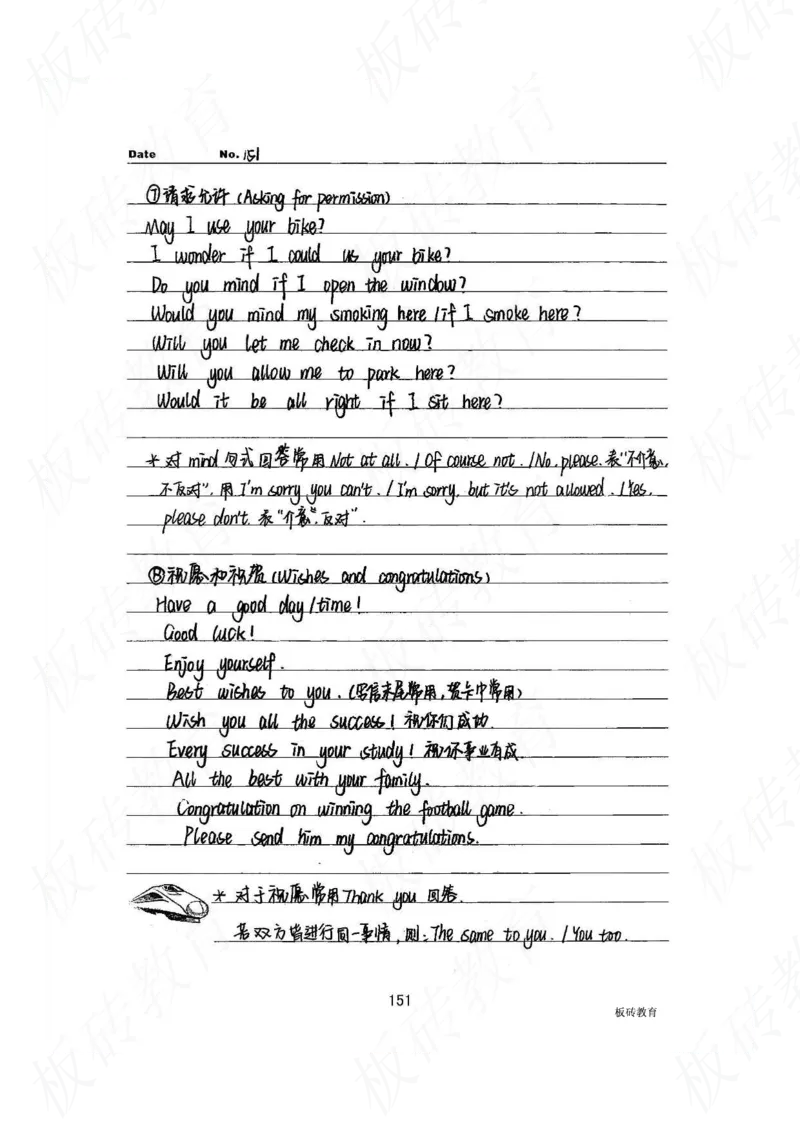 Date No. 151
⑦请求允许 (Asking for permission)
May I use your bike?
I wonder if I could us your bike?
Do you mind if I open the window?
Would you mind my smoking here / if I smoke here?
Will you let me check in now?
Will you allow me to park here?
Would it be all right if I sit here?
* 对 mind 句式回答常用 Not at all. / Of course not. / No, please. 表“不介意,
不反对”, 用 I'm sorry you can't. / I'm sorry, but it's not allowed. / Yes,
please don't. 表“介意”,反对”.
⑧祝愿和祝贺 (Wishes and congratulations)
Have a good day / time!
Good luck!
Enjoy yourself.
Best wishes to you. (写信末尾常用, 贺卡中常用)
Wish you all the success! 祝你们成功.
Every success in your study! 祝你事业有成.
All the best with your family.
Congratulation on winning the football game.
Please send him my congratulations.
* 对于祝愿常用 Thank you 回答.
若双方皆进行同一事情, 则: The same to you. / You too.
151
板砖教育